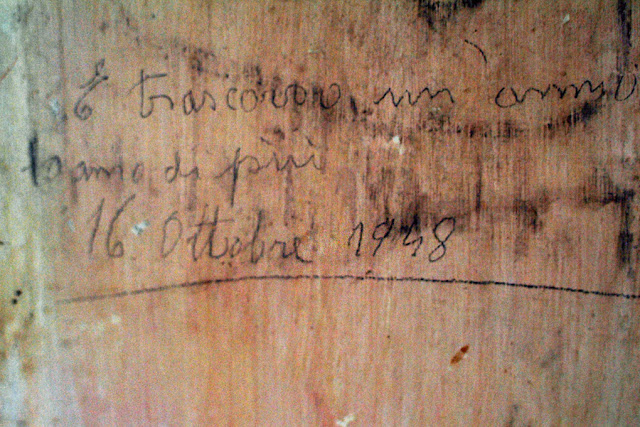 È trascorso un anno
t'amo di più
16 Ottobre 1948